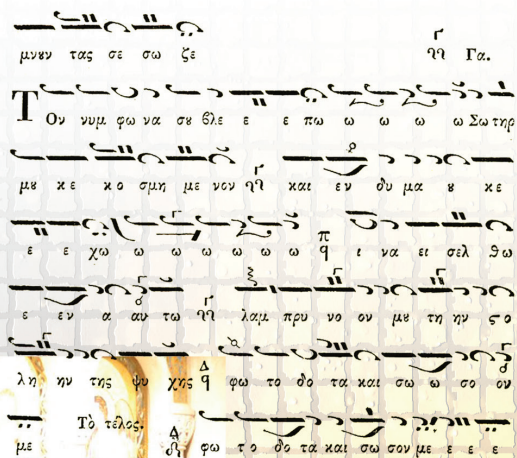 μνȣν τας σε σω ζε Γα.
Τ Ον νυμ φω να σȣ βλε ε ε πω ω ω ω ω Σω τηρ
μȣ κε κο σμη με νον και εν δυ μα ȣ κε
ε ε χω ω ω ω ω ω ω π q ι να ει σελ θω
ε εν α αυ τω λαμ πρυ νο ον μȣ τη ην ϛο
λη ην της ψυ χης Δ q φω το δο τα και σω ω σο ον
με Τὸ τέλος. Δ φω το δο τα και σω σον με ε ε ε